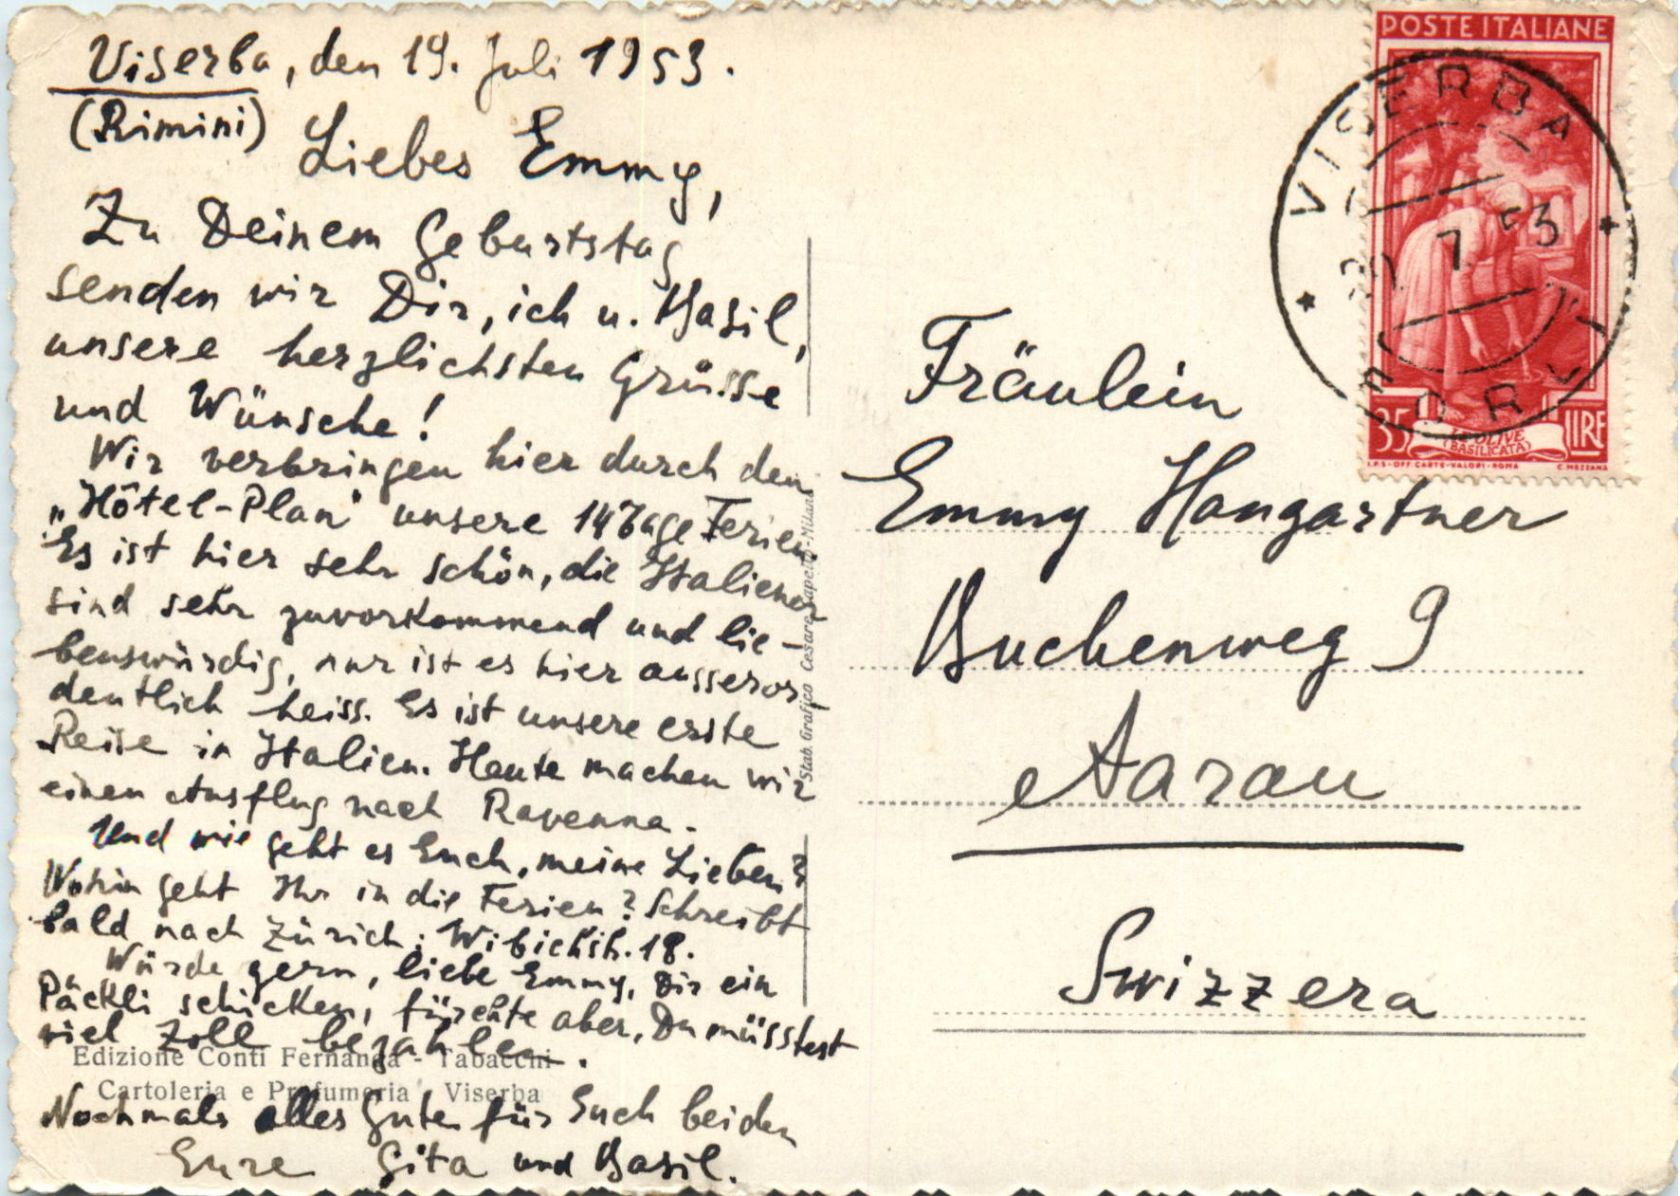 Viserba, den 19. Juli 1953.
(Rimini)
Liebes Emmy,
Zu Deinem Geburtstag
senden wir Dir, ich u. Basil,
unsere herzlichsten Grüsse
und Wünsche!
Wir verbringen hier durch den
"Hôtel-Plan" unsere 14 Tage Ferien.
Es ist hier sehr schön, die Italiener
sind sehr zuvorkommend und lie-
benswürdig, nur ist es hier ausseror
dentlich heiss. Es ist unsere erste
Reise in Italien. Heute machen wir
einen Ausflug nach Ravenna.
Und wie geht es Euch, meine Lieben?
Wohin geht Ihr in die Ferien? Schreibt
bald nach Zürich, 18.
Würde gern, liebe Emmy, Dir ein
Päckli schicken, fürchte aber, Du müsstest
viel Zoll bezahlen.
Edizione Conti Fernanda - Tabacchi
Cartoleria e Profumeria - Viserba
Nochmals alles Gute für Euch beiden
Eure Gita und Basil.
Stab. Grafico Cesare Milano
POSTE ITALIANE
VISERBA
7 53
FORLI
35 LIRE
LE OLIVE
(BASILICATA)
I.P.S-OFF. CARTE-VALORI-ROMA C. MEZZANA
Fräulein
Emmy Hangartner
Buchenweg 9
Aarau
Swizzera